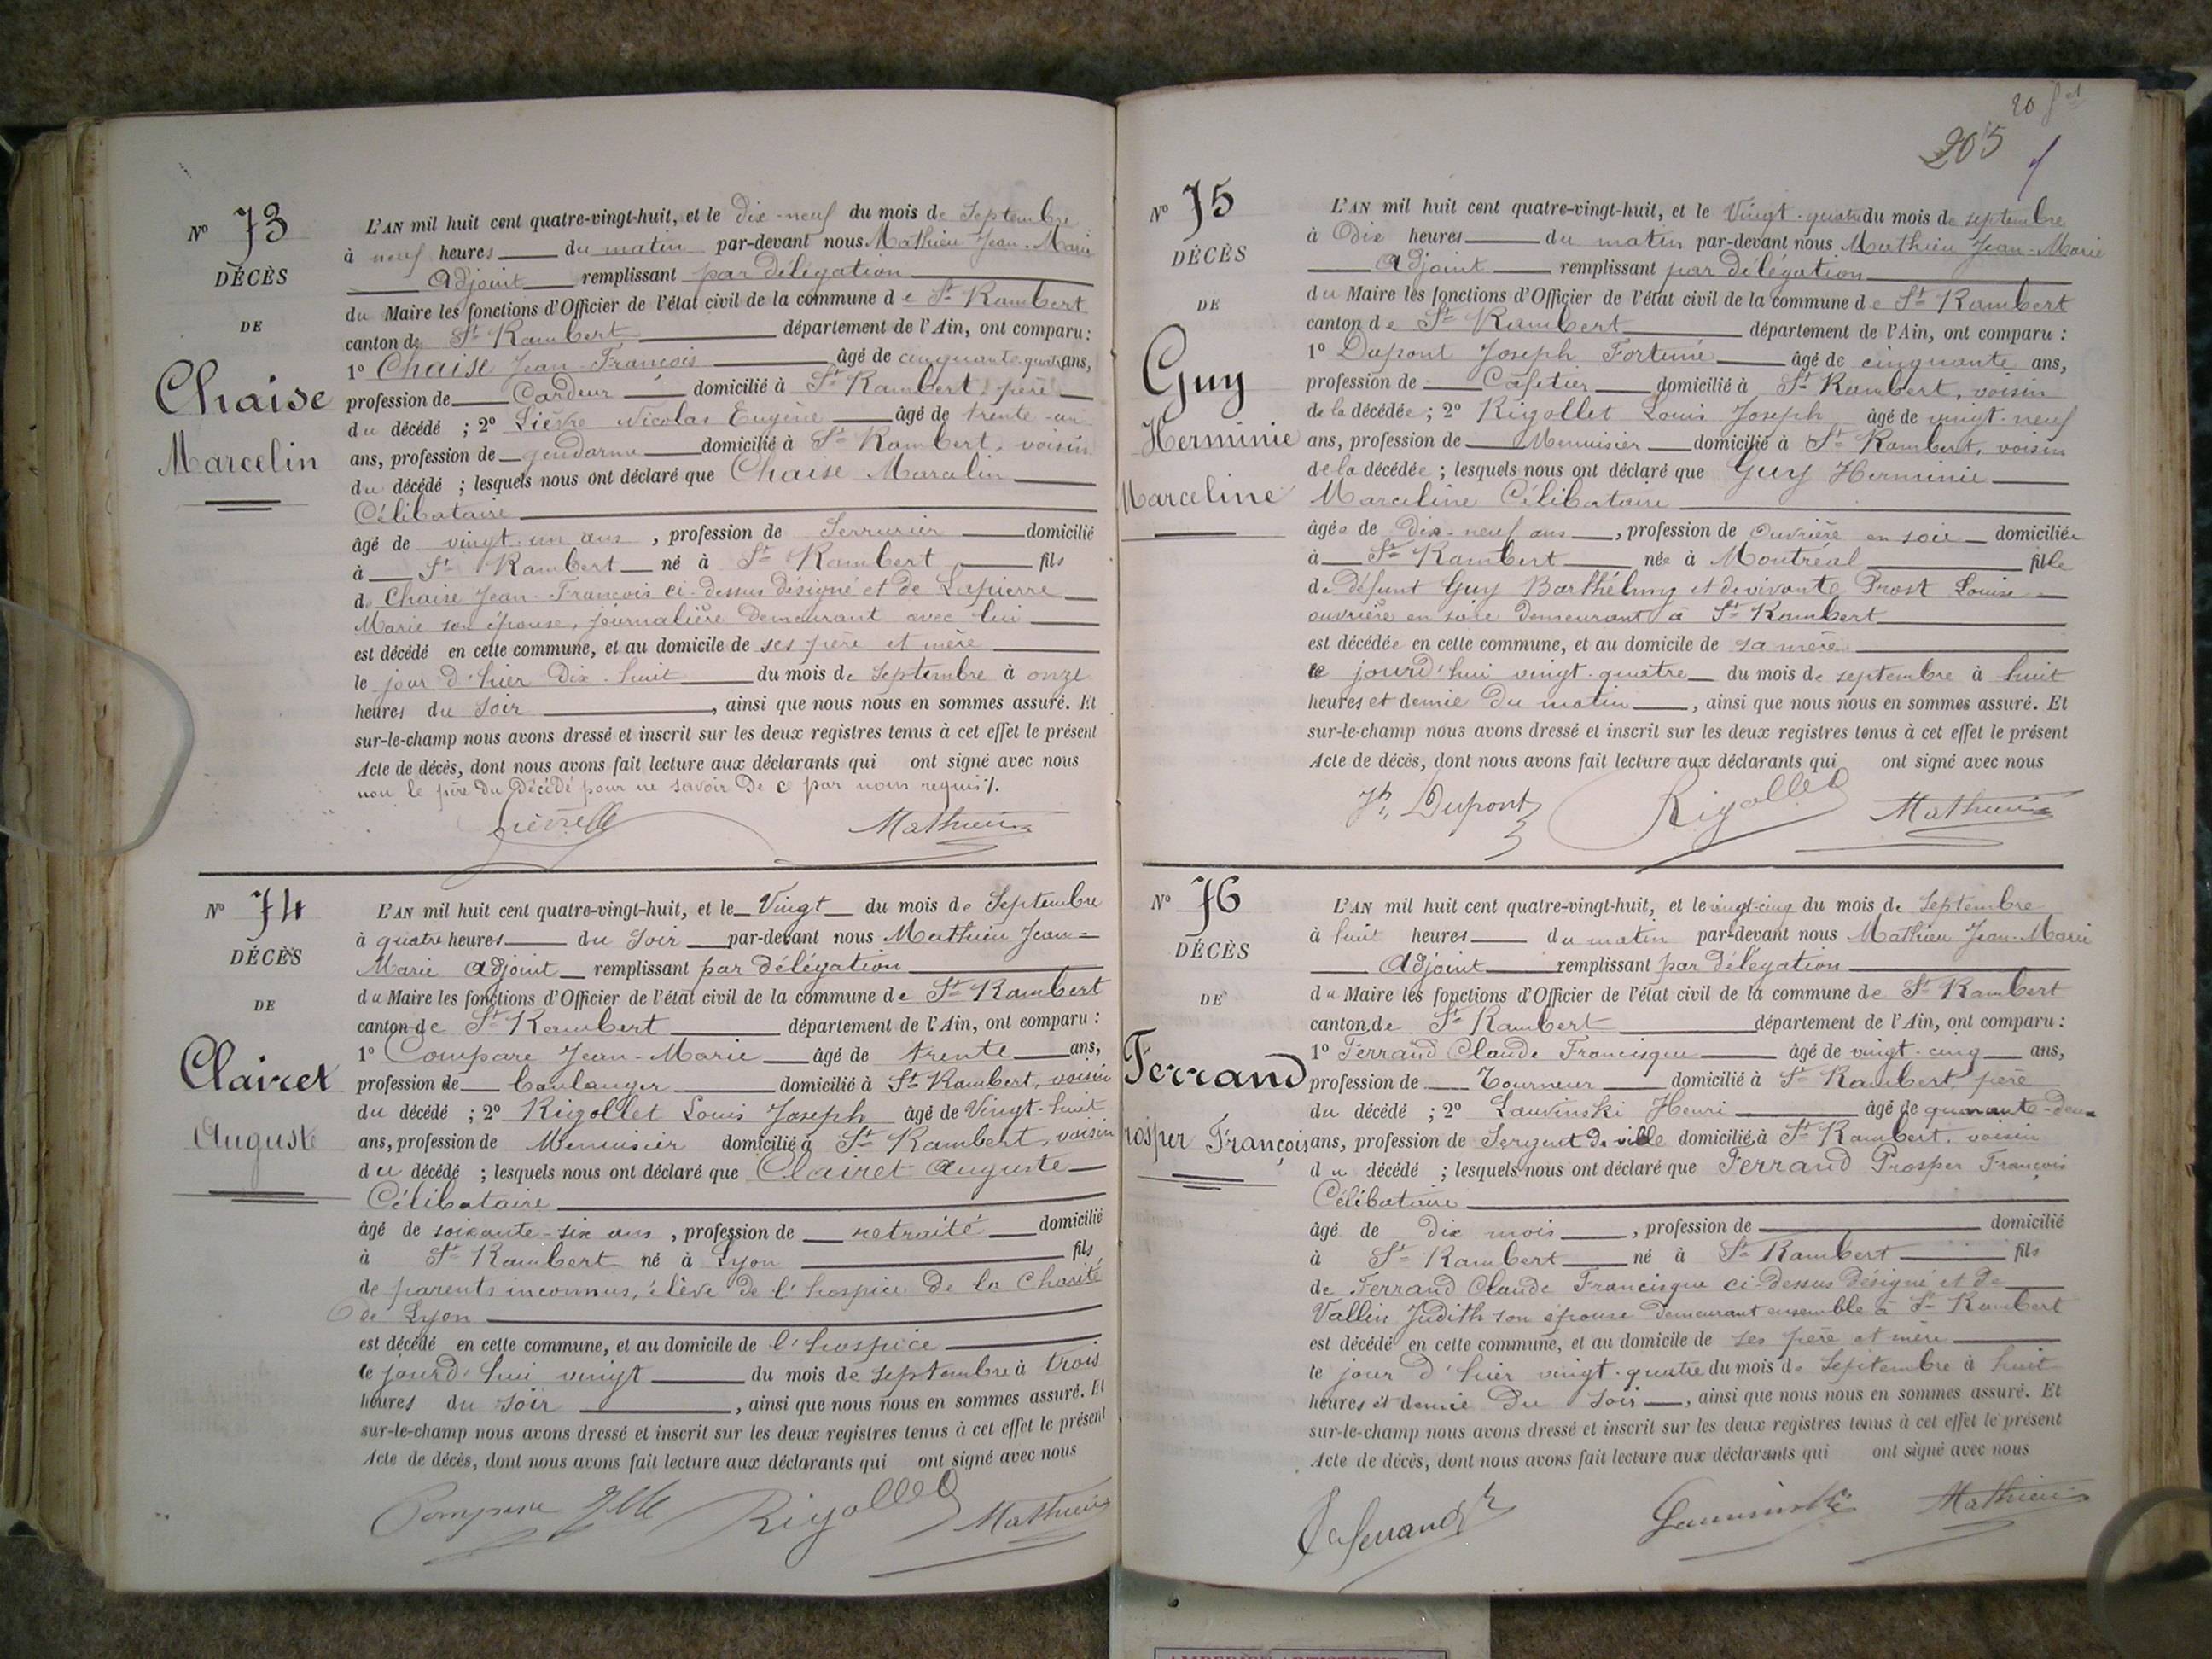 Nº 73
DÉCÈS
DE
Chaise
Marcelin
L'AN mil huit cent quatre-vingt-huit, et le dix-neuf du mois de Septembre
à neuf heures du matin par-devant nous Mathieu Jean-Marie
Adjoint remplissant par délégation
du Maire les fonctions d'Officier de l'état civil de la commune de St Rambert
canton de St Rambert département de l'Ain, ont comparu :
1º Chaise Jean-François âgé de cinquante quatre ans,
profession de Cardeur domicilié à St Rambert, père
du décédé ; 2º Lièvre Nicolas Eugène âgé de trente-un
ans, profession de gendarme domicilié à St Rambert, voisin
du décédé ; lesquels nous ont déclaré que Chaise Marcelin
Célibataire
âgé de vingt-un ans, profession de Serrurier domicilié
à St Rambert né à St Rambert fils
de Chaise Jean-François ci-dessus désigné et de Lapierre
Marie son épouse, journalière demeurant avec lui
est décédé en cette commune, et au domicile de ses père et mère
le jour d'hier dix-huit du mois de Septembre à onze
heures du soir, ainsi que nous nous en sommes assuré. Et
sur-le-champ nous avons dressé et inscrit sur les deux registres tenus à cet effet le présent
Acte de décès, dont nous avons fait lecture aux déclarants qui ont signé avec nous
non le père du décédé pour ne savoir de ce par nous requis /.
Lièvre Mathieu
Nº 74
DÉCÈS
DE
Clairet
Auguste
L'AN mil huit cent quatre-vingt-huit, et le Vingt du mois de Septembre
à quatre heures du soir par-devant nous Mathieu Jean-
Marie Adjoint remplissant par délégation
du Maire les fonctions d'Officier de l'état civil de la commune de St Rambert
canton de St Rambert département de l'Ain, ont comparu :
1º Compare Jean-Marie âgé de trente ans,
profession de boulanger domicilié à St Rambert, voisin
du décédé ; 2º Rigollet Louis Joseph âgé de Vingt-huit
ans, profession de Menuisier domicilié à St Rambert, voisin
du décédé ; lesquels nous ont déclaré que Clairet Auguste
Célibataire
âgé de soixante-six ans, profession de retraité domicilié
à St Rambert né à Lyon fils
de parents inconnus, élève de l'hospice de la Charité
de Lyon
est décédé en cette commune, et au domicile de l'hospice
ce jourd'hui vingt du mois de Septembre à trois
heures du soir, ainsi que nous nous en sommes assuré. Et
sur-le-champ nous avons dressé et inscrit sur les deux registres tenus à cet effet le présent
Acte de décès, dont nous avons fait lecture aux déclarants qui ont signé avec nous
Compare Rigollet Mathieu
205
Nº 75
DÉCÈS
DE
Guy
Herminie
Marceline
L'AN mil huit cent quatre-vingt-huit, et le Vingt-quatre du mois de septembre
à Dix heures du matin par-devant nous Mathieu Jean-Marie
Adjoint remplissant par délégation
du Maire les fonctions d'Officier de l'état civil de la commune de St Rambert
canton de St Rambert département de l'Ain, ont comparu :
1º Dupont Joseph Fortuné âgé de cinquante ans,
profession de Cafetier domicilié à St Rambert, voisin
de la décédée ; 2º Rigollet Louis Joseph âgé de vingt-neuf
ans, profession de Menuisier domicilié à St Rambert, voisin
de la décédée ; lesquels nous ont déclaré que Guy Herminie
Marceline Célibataire
âgée de dix-neuf ans, profession de Ouvrière en soie domiciliée
à St Rambert née à Montréal fille
de défunt Guy Barthélmy et de vivante Prost Louise
ouvrière en soie demeurant à St Rambert
est décédée en cette commune, et au domicile de sa mère
ce jourd'hui vingt-quatre du mois de septembre à huit
heures et demie du matin, ainsi que nous nous en sommes assuré. Et
sur-le-champ nous avons dressé et inscrit sur les deux registres tenus à cet effet le présent
Acte de décès, dont nous avons fait lecture aux déclarants qui ont signé avec nous
Jh Dupont Rigollet Mathieu
Nº 76
DÉCÈS
DE
Ferrand
rosper François
L'AN mil huit cent quatre-vingt-huit, et le vingt-cinq du mois de Septembre
à huit heures du matin par-devant nous Mathieu Jean-Marie
Adjoint remplissant par délégation
du Maire les fonctions d'Officier de l'état civil de la commune de St Rambert
canton de St Rambert département de l'Ain, ont comparu :
1º Ferrand Claude Francisque âgé de vingt-cinq ans,
profession de Tourneur domicilié à St Rambert, père
du décédé ; 2º Lauvinski Henri âgé de quarante-deux
ans, profession de Sergent de ville domicilié à St Rambert, voisin
du décédé ; lesquels nous ont déclaré que Ferrand Prosper François
Célibataire
âgé de dix mois, profession de domicilié
à St Rambert né à St Rambert fils
de Ferrand Claude Francisque ci-dessus désigné et de
Vallin Judith son épouse demeurant ensemble à St Rambert
est décédé en cette commune, et au domicile de ses père et mère
le jour d'hier vingt-quatre du mois de Septembre à huit
heures et demie du soir, ainsi que nous nous en sommes assuré. Et
sur-le-champ nous avons dressé et inscrit sur les deux registres tenus à cet effet le présent
Acte de décès, dont nous avons fait lecture aux déclarants qui ont signé avec nous
Ferrand Mathieu